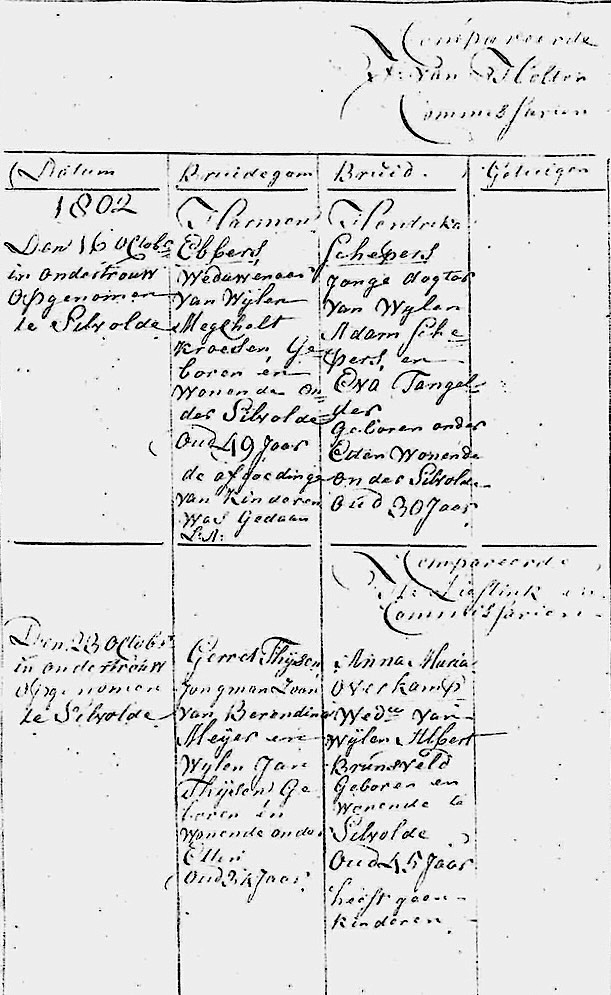 Compareerde
van Holten
Commissarien
Datum
Bruidegom
Bruid.
Getuigen
1802
Den 16 Octobr
in ondertrouw
opgenomen
te Silvolde
Harmen
Ebbers
Weduwenaar
van Wijlen
Megchelt
Kroesen, Ge=
boren en
Wonende on=
der Silvolde
Oud 49 Jaar
de afgoedinge
van Kinderen
was Gedaan
L:A:
Hendrika
Schepers
Jonge dogter
van Wylen
Adam Sche=
pers, en
Eva Tangel=
der
Geboren onder
Eden Wonende
onder Silvolde
Oud 30 Jaar
Compareerde
en
Commissarien
Den 23 Octobr
in ondertrouw
opgenomen
te Silvolde
Gerret Thijsen
Jongman Zoon
van Berendina
Meijer en
Wylen Jan
Thijsen Ge
boren en
Wonende onder
Etten
Oud Jaar
Anna Maria
Overkamp
Wedue van
Wijlen Albert
Brunsveld
Geboren en
Wonende te
Silvolde
Oud 45 Jaar
heeft geen
kinderen